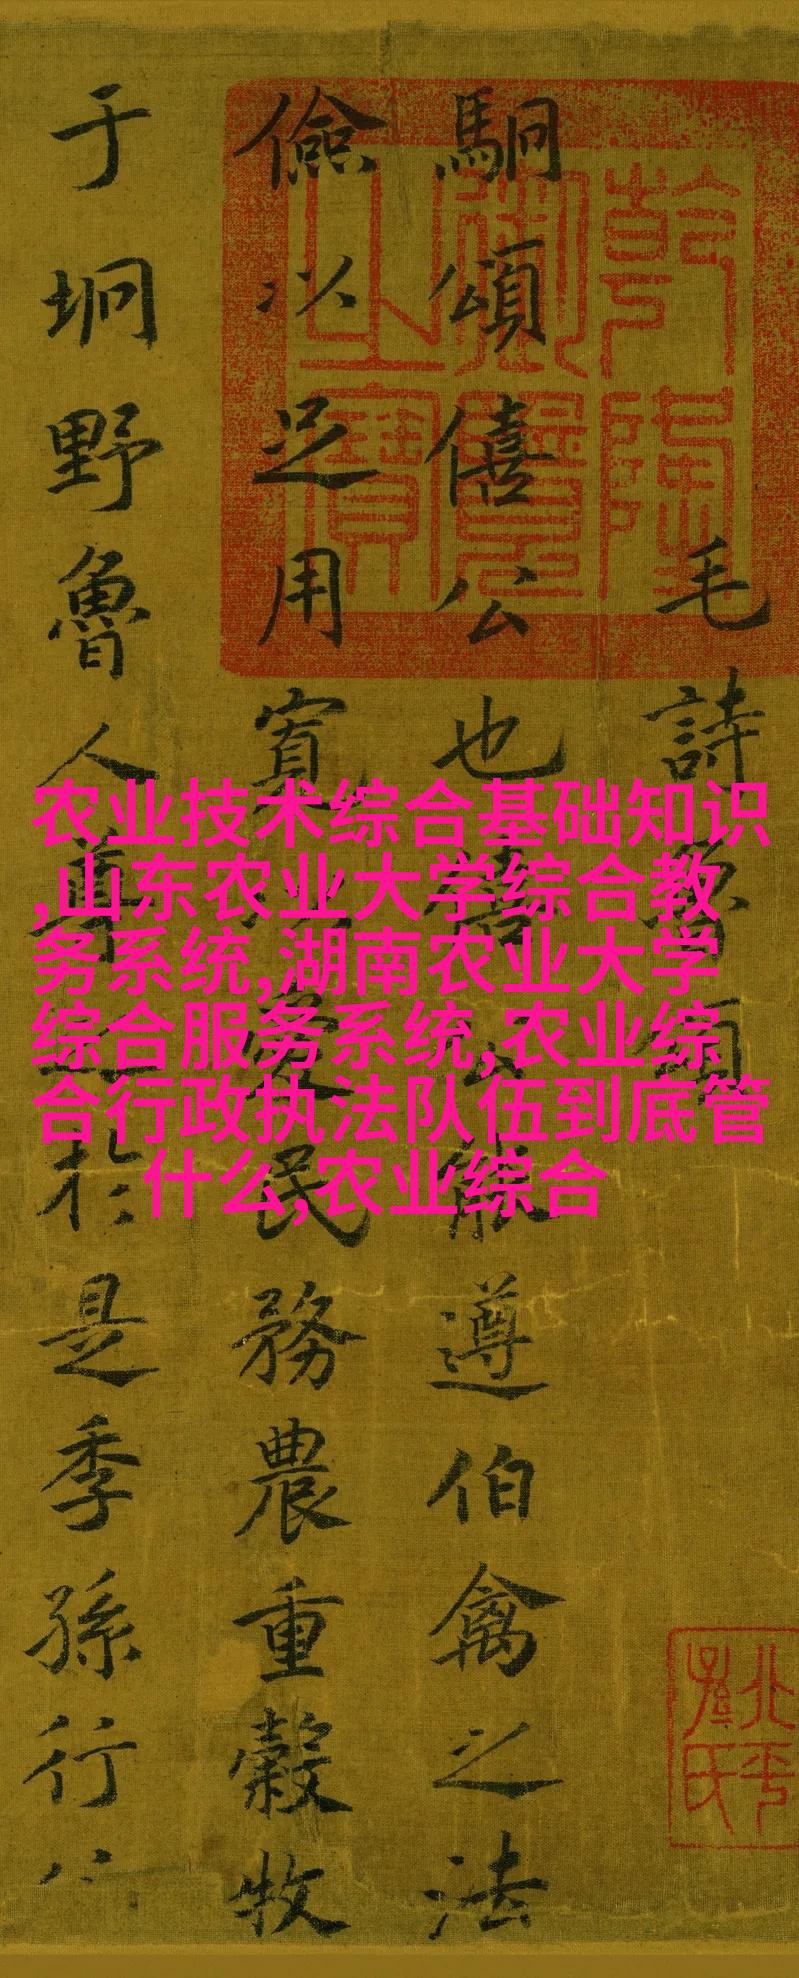 毛詩魯頌
駉頌僖公也僖公能遵伯禽之法
儉以足用寬以愛民務農重穀牧
于坰野魯人尊之於是季孫行
乾隆
御覽
之寶
北平
孫氏
农业技术综合基础知识
,山东农业大学综合教
务系统,湖南农业大学
综合服务系统,农业综
合行政执法队伍到底管
什么,农业综合